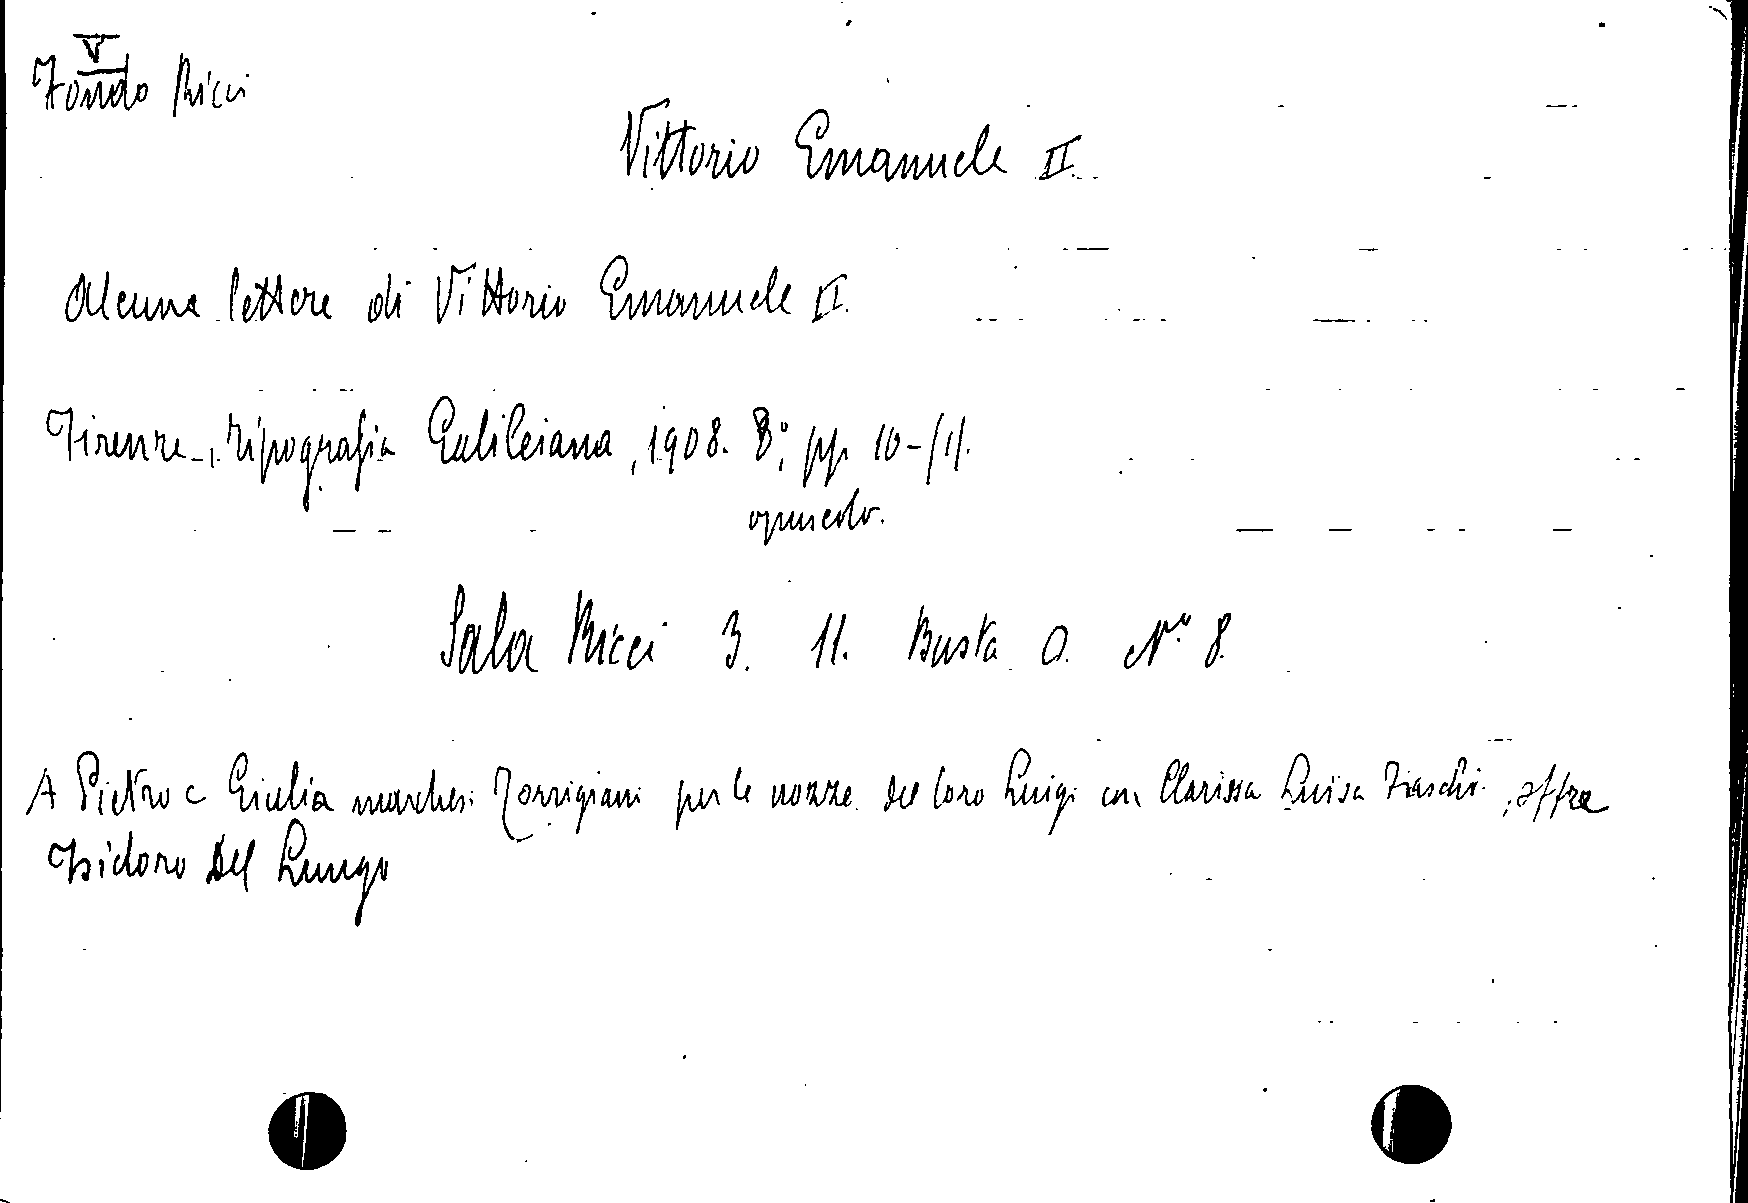 V
Fondo Ricci
Vittorio Emanuele II.
Alcune lettere di Vittorio Emanuele II.
Firenze, Tipografia Galileiana, 1908. 8°, pp. 10-(1).
opuscolo.
Sala Ricci 3. 11. Busta O. N.° 8.
A Pietro e Giulia marchesi Torrigiani per le nozze del loro Luigi con Clarissa Luisa Fiaschi, offre
Isidoro Del Lungo